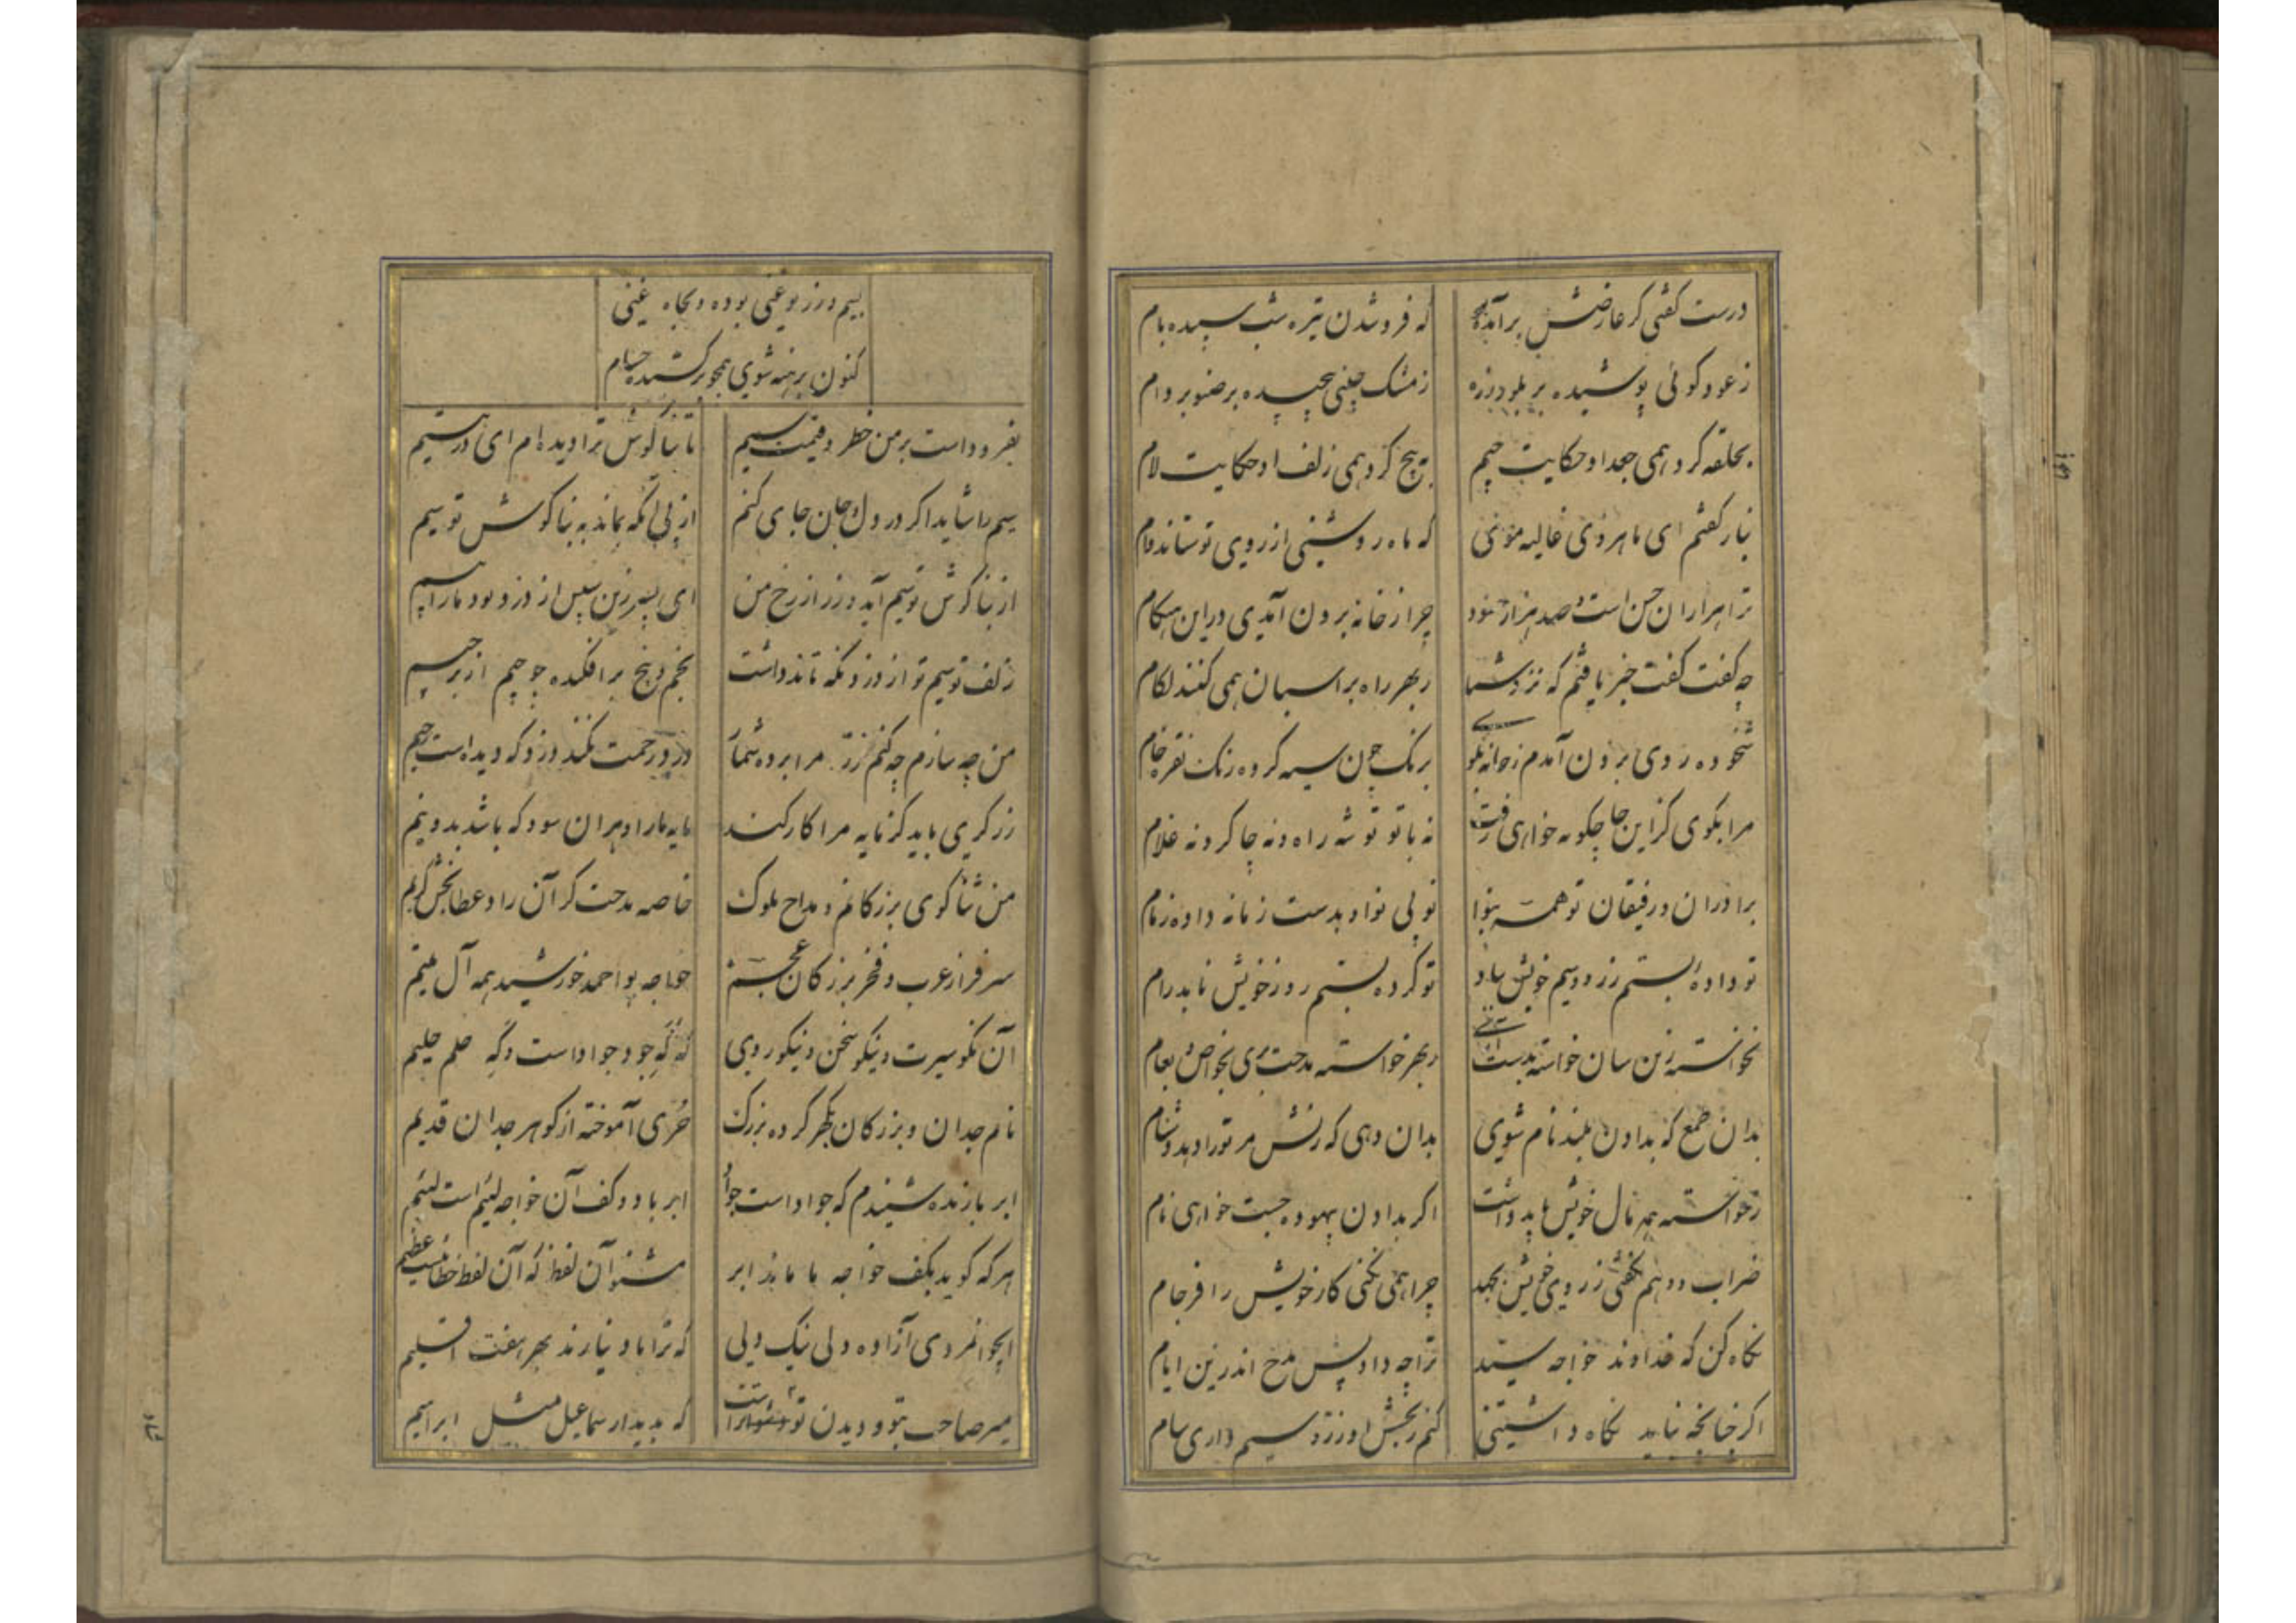 درست گفتی کز عارضش برآمده که فروشدن تیره شب سپیده بام
ز عود گوئی پوشیده بر بلور زره ز مشک چینی پیچیده بر صنوبر دام
بحلقه کرد همی جعد او حکایت جیم به پیچ کرد همی زلف او حکایت لام
بناز گفتم ای ماهروی غالیه موئی که ماه روشنی از روی تو ستاند وام
ترا هزاران حسن است و صد هزار حسود چرا ز خانه برون آمدی در این هنگام
چه گفت گفت خبر یافتم که نزد شما ز بهر راه بر اسبان همی کنند لگام
شخوده روی برون آمدم ز خانه بکوی برنک چون سیه کرده رنک نقره خام
مرا بگوی کز این جا چگونه خواهی رفت نه با تو توشه راه و نه چاکر و نه غلام
برادران و رفیقان تو همه بنوا تو بی نوا و بدست زمانه داده زمام
تو داده بستم زر و سیم خویش بباد تو کرده بستم روز خویش نابدرام
نخواسته زین سان خواسته بدست آئی ز بهر خواسته مدحت بری بخواص و بعام
بدان طمع که بدادن بلند نام شوی بدان دهی که زنش مر تو را دهد دشنام
ز خواسته همه نال خویش باید داشت اگر بدادن بیهوده جست خواهی نام
ضراب دو بهم نکفتی ز روی خویش بجهد چرا همی نکنی کار خویش را فرجام
نگاه کن که خداوند خواجه سید ترا چه داد پس مدح اندرین ایام
اگر چنانچه نباید نگاه داشتنی کنم ز بخشش او زر و سیم داری سام
بسیم و زر تو غنی بوده و بجاه غنی
کنون برهنه شوی همچو برکشیده حسام
بفرود است بر من خطر و قیمت سیم تا بناگوش ترا دیده ام ای در یتیم
سیم را شاید اگر در دل و جان جای کنم از پی آنکه بماند به بناگوش تو سیم
از بناگوش تو سیم آید و زر از رخ من ای پسر زین سپس از دزد بود ما را بیم
زلف تو سیم تو از دزد نگه تاند داشت بخم و پیچ برافکنده چو جیم از بر جیم
من چه سازم چه کنم زر مرا برده شما دزد بر دزد رحمت نکند دزد که دید است رحیم
زرگری باید کز مایه مرا کار کند مایه ما را و هر آن سود که باشد بدو نیم
من ثنا گوی بزرگانم و مداح ملوک خاصه مدحت گر آن راد عطا بخش کریم
سرفراز عرب و فخر بزرگان عجم خواجه بو احمد خورشید همه آل تمیم
آن نکو سیرت و نیکو سخن و نیکو روی که گه جود جواد است و گه حلم حلیم
نام جدان و بزرگان بگهر کرده بزرگ حری آموخته از گوهر جدان قدیم
ابر بارنده شنیدم که جواد است جواد ابر با دو کف آن خواجه لئیم است لئیم
هر که گوید بکف خواجه ما ماند ابر مشنو آن لفظ که آن لفظ خطائیست عظیم
ای جوانمردی آزاده دلی نیک دلی که ترا باد نیارند بهر هفت اقلیم
میر صاحب بتو و دیدن تو شاد است که بدیدار سماعیل مثل ابراهیم